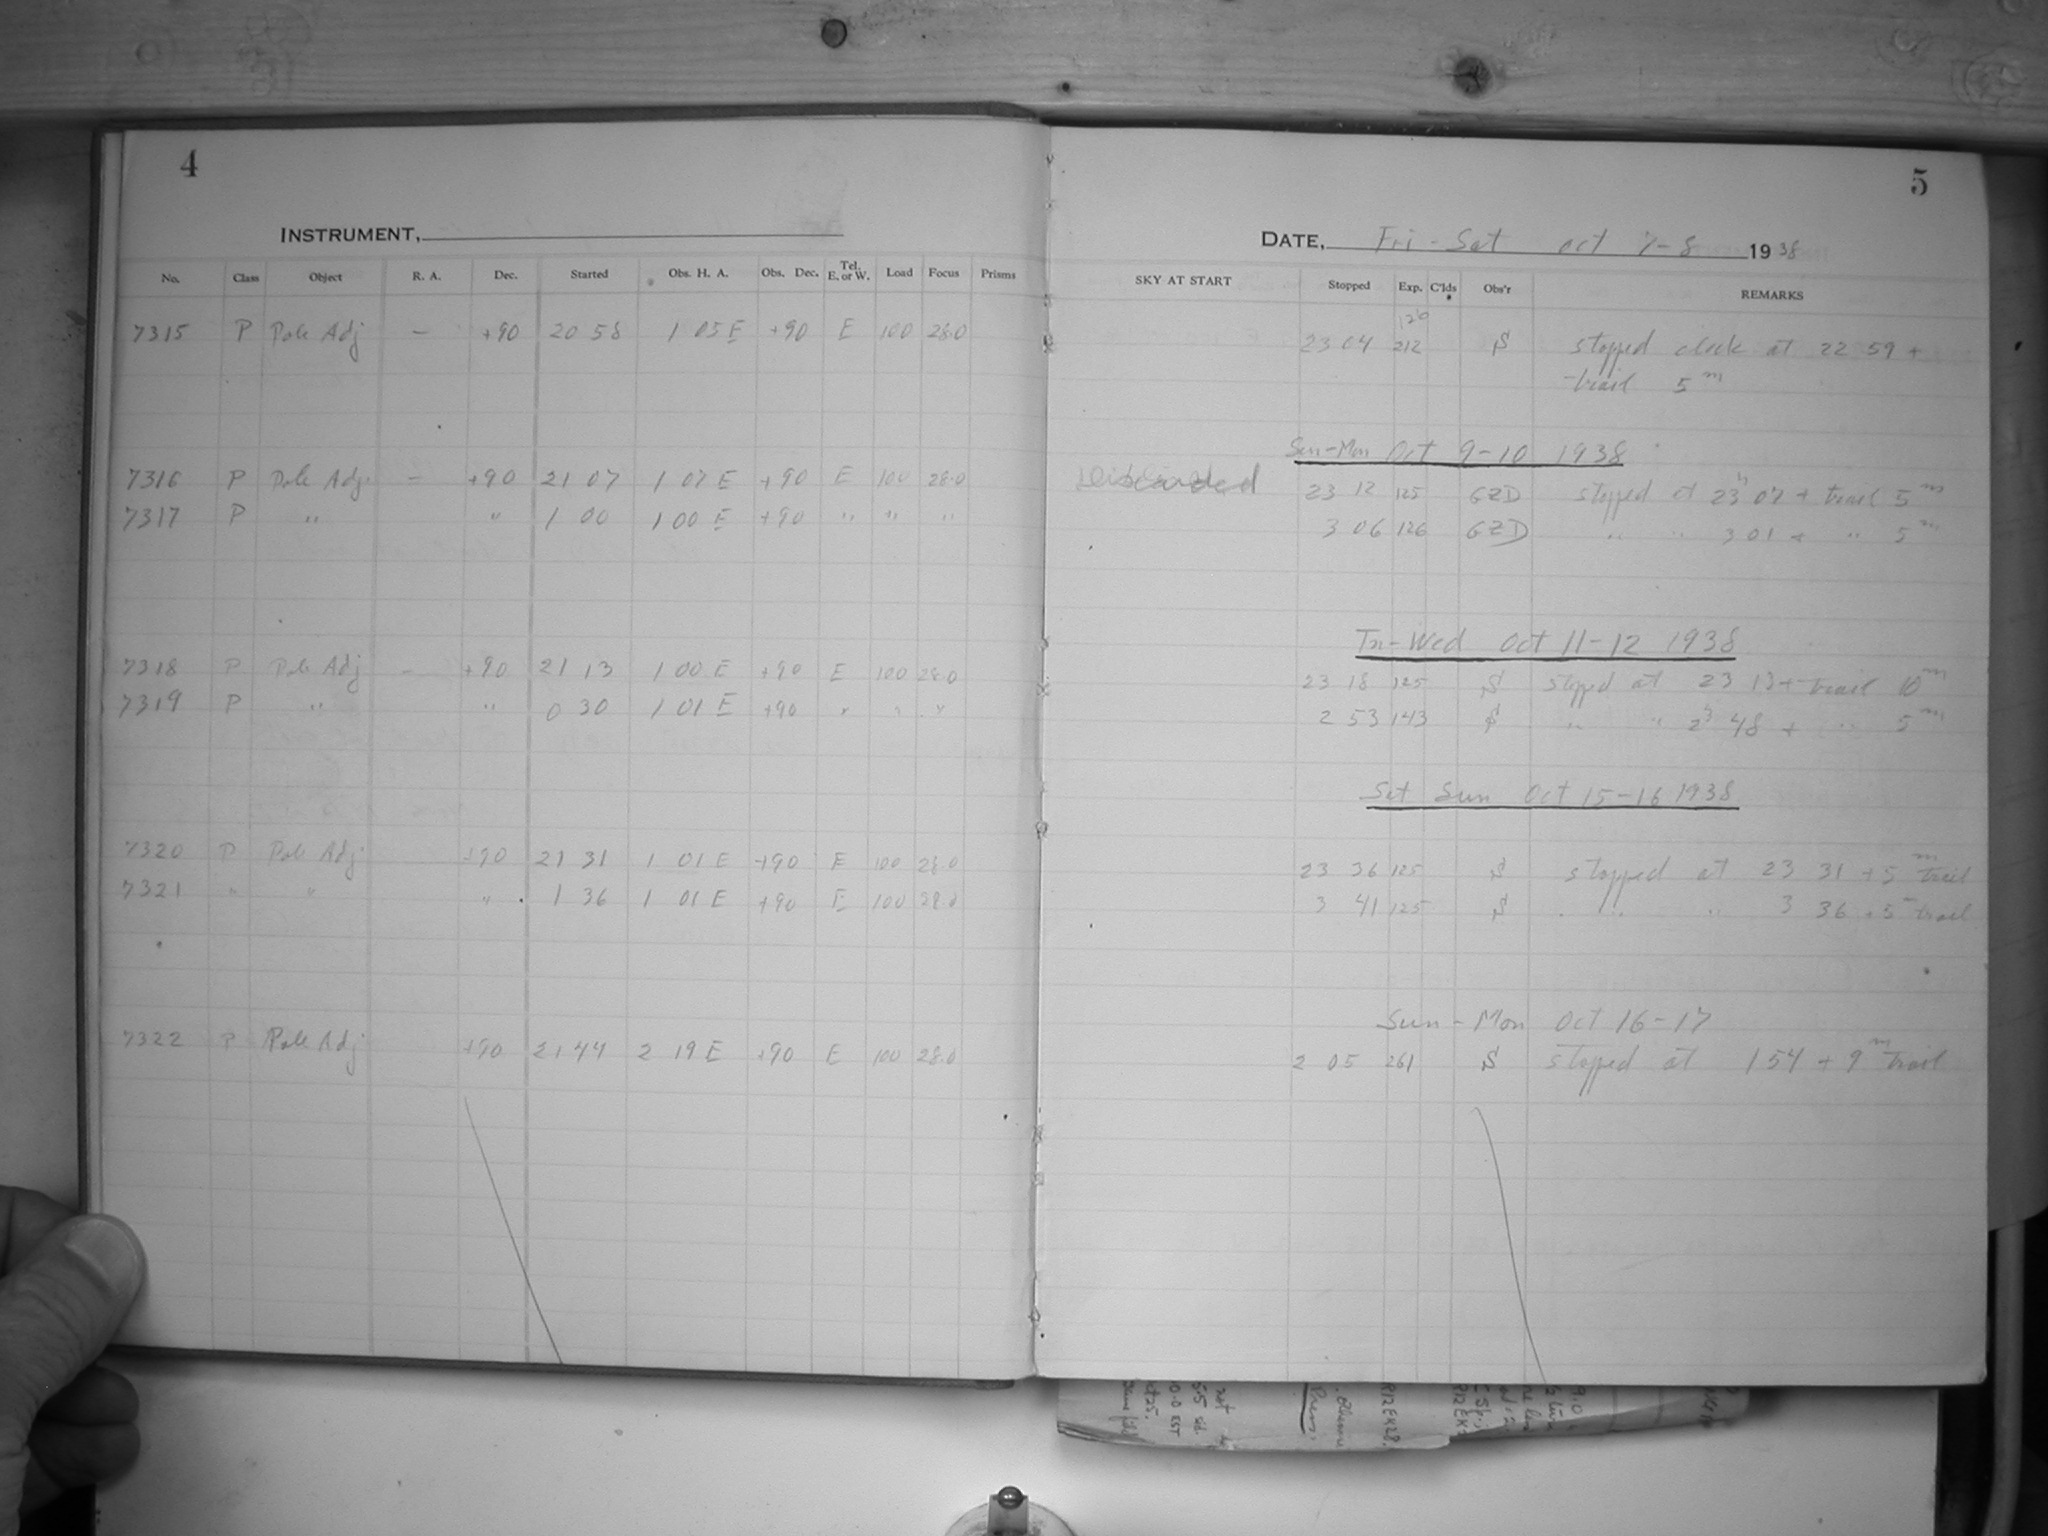 4
INSTRUMENT,
No. Class Object R. A. Dec. Started Obs. H. A. Obs. Dec. Tel. E. or W. Load Focus Prisms
7315 P Pole Adj — +90 20 58 1 05 E +90 E 100 28.0
7316 P Pole Adj. — +90 21 07 1 07 E +90 E 100 28.0
7317 P " " 1 00 1 00 E +90 " " "
7318 P Pole Adj — +90 21 13 1 00 E +90 E 100 28.0
7319 P " " 0 30 1 01 E +90 " " "
7320 P Pole Adj +90 21 31 1 01 E +90 E 100 28.0
7321 " " " 1 36 1 01 E +90 E 100 28.0
7322 P Pole Adj +90 21 44 2 19 E +90 E 100 28.0
5
DATE, Fri - Sat Oct 7-8 1938
SKY AT START Stopped Exp. C'lds Obs'r REMARKS
126
23 04 212 S stopped clock at 22 59 +
trail 5m
Sun-Mon Oct 9-10 1938
Discarded 23 12 125 GZD stopped at 23h 07 + trail 5m
3 06 126 GZD " " 3 01 + " 5m
Tu-Wed Oct 11-12 1938
23 18 125 S stopped at 23 13 + trail 10m
2 53 143 S " " 2h 48 + " 5m
Sat Sun Oct 15-16 1938
23 36 125 S stopped at 23 31 + 5m trail
3 41 125 S " " 3 36 + 5m trail
Sun - Mon Oct 16-17
2 05 261 S stopped at 1 54 + 9m trail